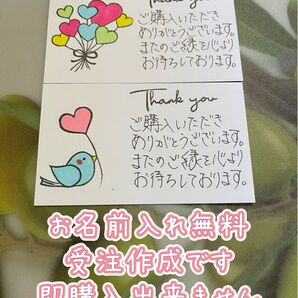 Thank you
ご購入いただき
ありがとうございます。
またのご縁を心より
お待ちしております。
Thank you
ご購入いただき
ありがとうございます。
またのご縁を心より
お待ちしております。
お名前入れ無料
受注作成です
即購入出来ません